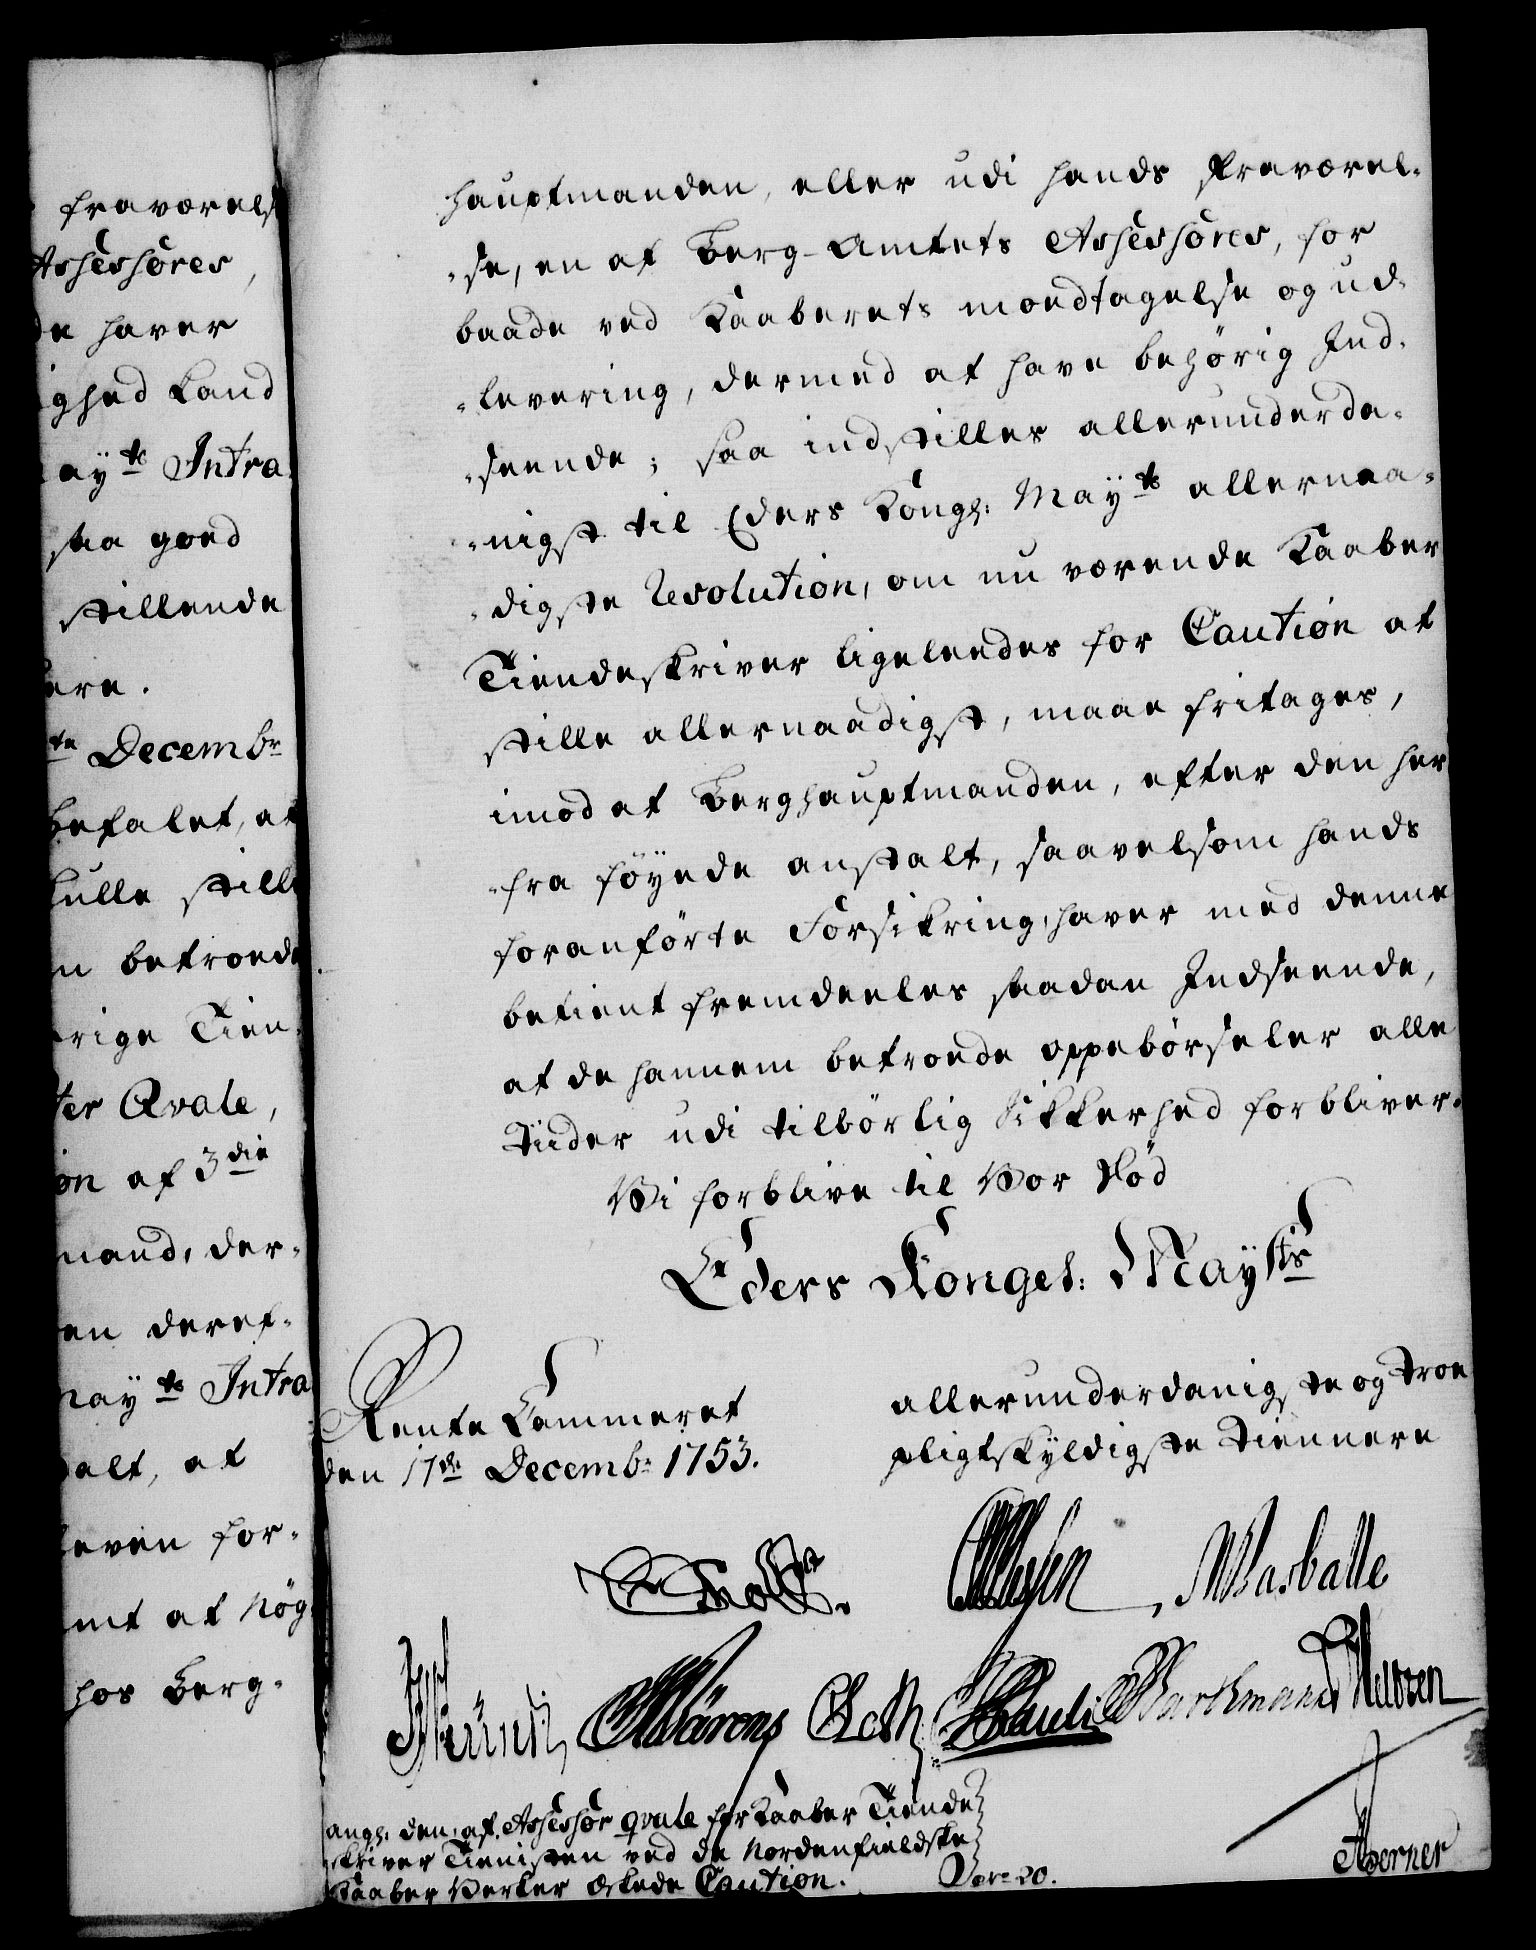 fraværelse
Assessores,
de haver
ighed Land
Mayts Intra
saa god
stillende
ere.
te Decembr
befalet, at
skulle stille
betroede
rige Tien
ter Qvale,
on af 3die
mand, der-
en deref-
Mayts Intra
alt, at
leven for-
mt at nög
hos Berg-
hauptmanden, eller udi hands Fraværel-
-se, en af Berg-Amtets Assessores, for
baade ved Kaaberets modtagelse og ud-
-levering, dermed at have behörig Ind-
-seende; saa indstilles allerunderda-
-nigst til Eders Kongl: Mayts allernaa-
-digste Resolution, om nu værende Kaaber
Tiendeskriver ligeleedes for Caution at
stille allernaadigst, maae fritages,
imod at Berghauptmanden, efter den her
-fra föyede anstalt, saavelsom hands
foranförte Forsikring, haver med denne
betient fremdeeles saadan Indseende,
at de hannem betroede oppebörseler alle
Tiider udi tilbörlig Sikkerhed forbliver.
Vi forblive til Vor Död
Eders Kongel: Mayts
Rente Cammeret
den 17de Decembr 1753.
allerunderdanigste og troe
pligtskyldigste tiennere
Holst.
Wasballe
JMünch
Wärens
Roth
Pauli
Barthmann
Nelvzen
Æerner
angl: den af Assessor Qvale for Kaaber Tiende
skriver Tienisten ved de Nordenfieldske
Kaaber Verker æskede Caution.
No 20.